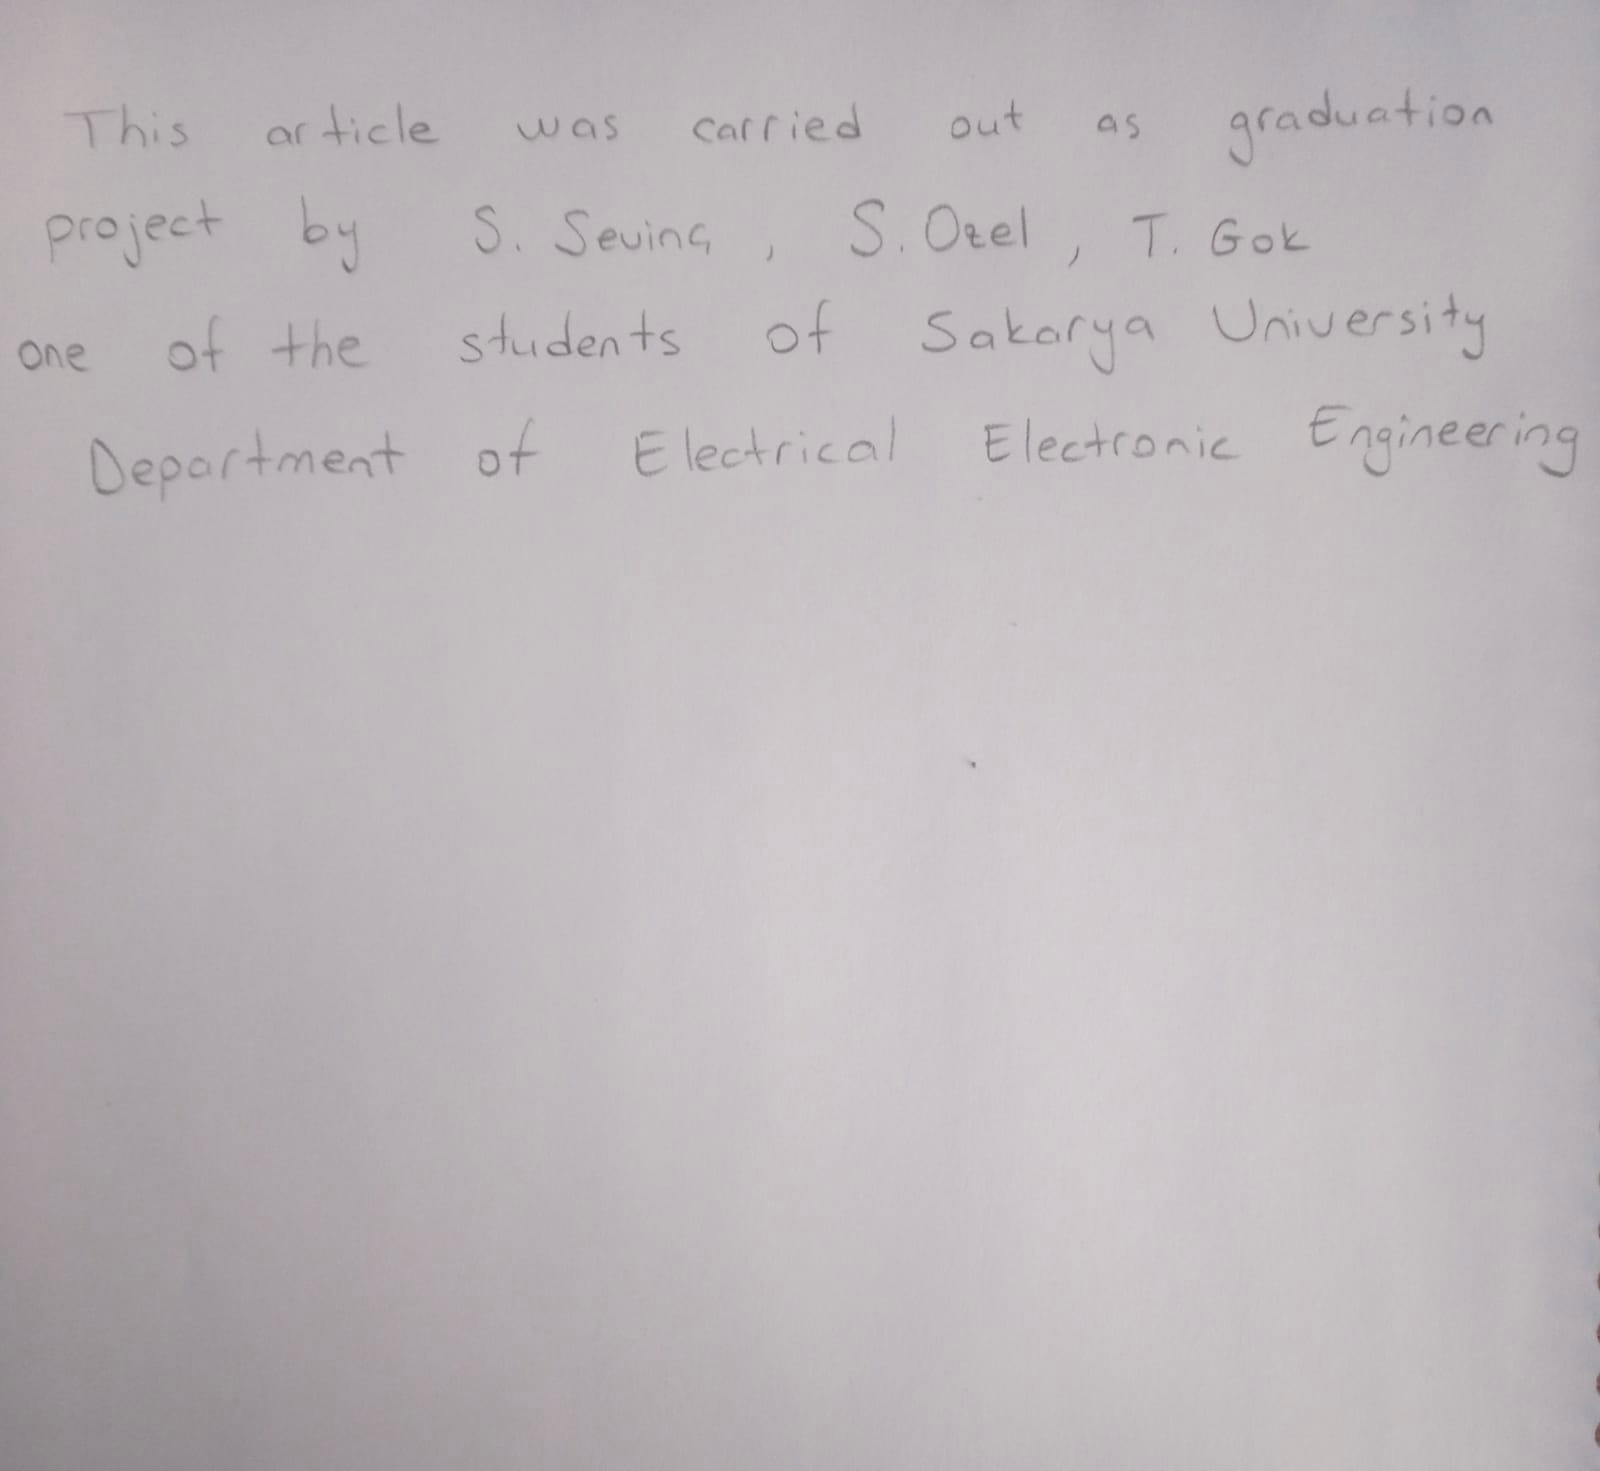 This article was carried out as graduation
project by S. Sevinç, S. Ozel, T. Gok
one of the students of Sakarya University
Department of Electrical Electronic Engineering